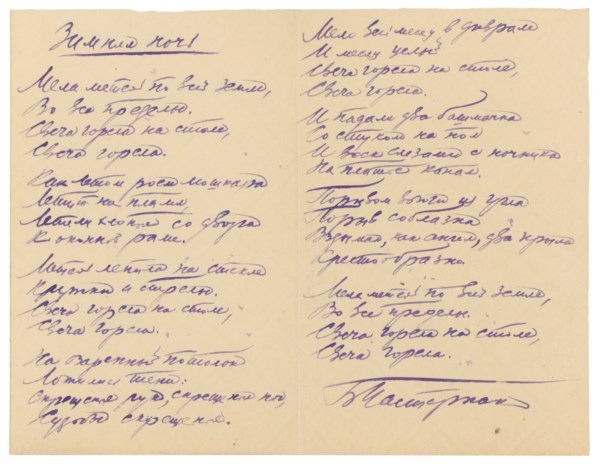 Зимняя ночь
Мела метель по всей земле,
Во все пределы.
Свеча горела на столе,
Свеча горела.
Как летом роем мошкара
Летит на пламя,
Летели хлопья со двора
К оконной раме.
Метель лепила на стекле
Кружки и стрелы.
Свеча горела на столе,
Свеча горела.
На озаренный потолок
Ложились тени:
Скрещенья рук, скрещенья ног,
Судьбы скрещенья.
Мело весь месяц в феврале
И месяц целый
Свеча горела на столе,
Свеча горела.
И падали два башмачка
Со стуком на пол
И воск слезами с ночника
На платье капал.
Порывом
Порыв соблазна
два крыла
Крестообразно
Мела метель по всей земле,
Во все пределы.
Свеча горела на столе,
Свеча горела.
Б Пастернак